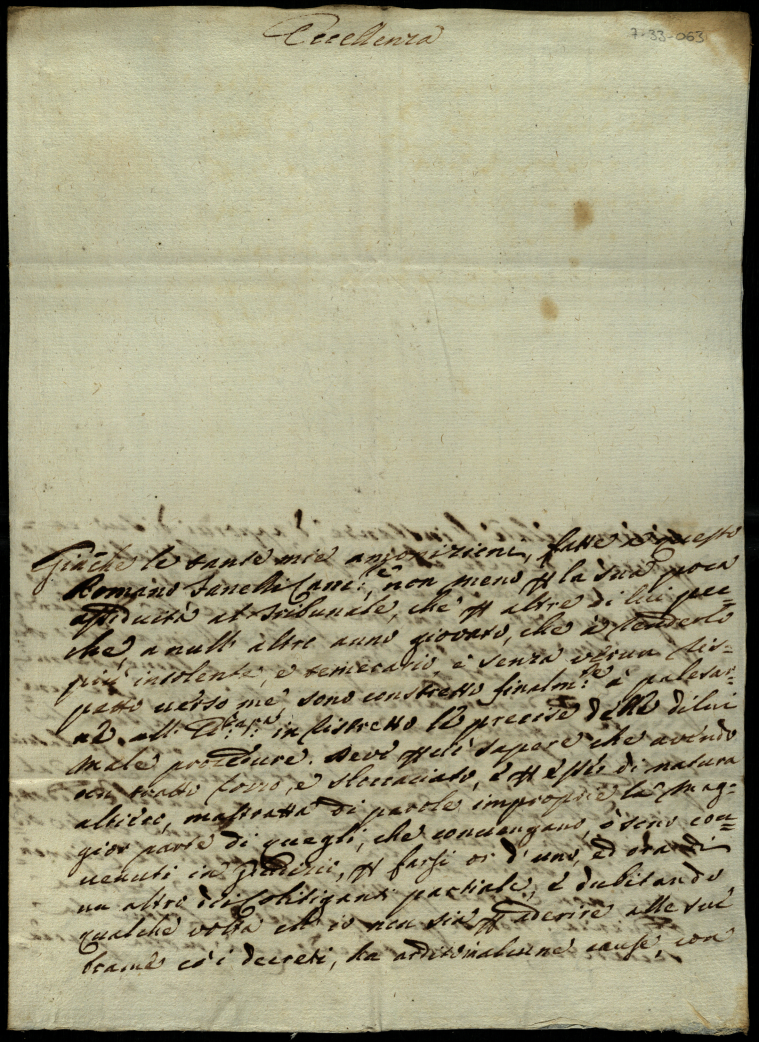 Eccellenza
7-33-063
Giache le tante mie ammonizioni, fatte à questo
Romano Canc.re, non meno p la sua poca
assiduità al Tribunale, che p altre di lui pec=
che, a null' altro anno giovato, che à renderlo
più insolente, e temerario, e senza verun ris=
petto verso me, sono constretto finalm.te à palesar=
ne all' in ristretto le precise delle di lui
male procedure. Deve p tanto sapere che avendo
un tratto rozzo, e sboccacciato, e p esser di natura
altiero, maltratta di parole improprie la mag=
gior parte di quegli, che convengano, ò sono con=
venuti in giudizii, p farsi or d' uno, ed ora di
un altro dei Colitiganti parziale, e dubitando
qualche volta ch' io non sia p aderire alle sue
brame co' i decreti, ha ardito in alcune cause, con